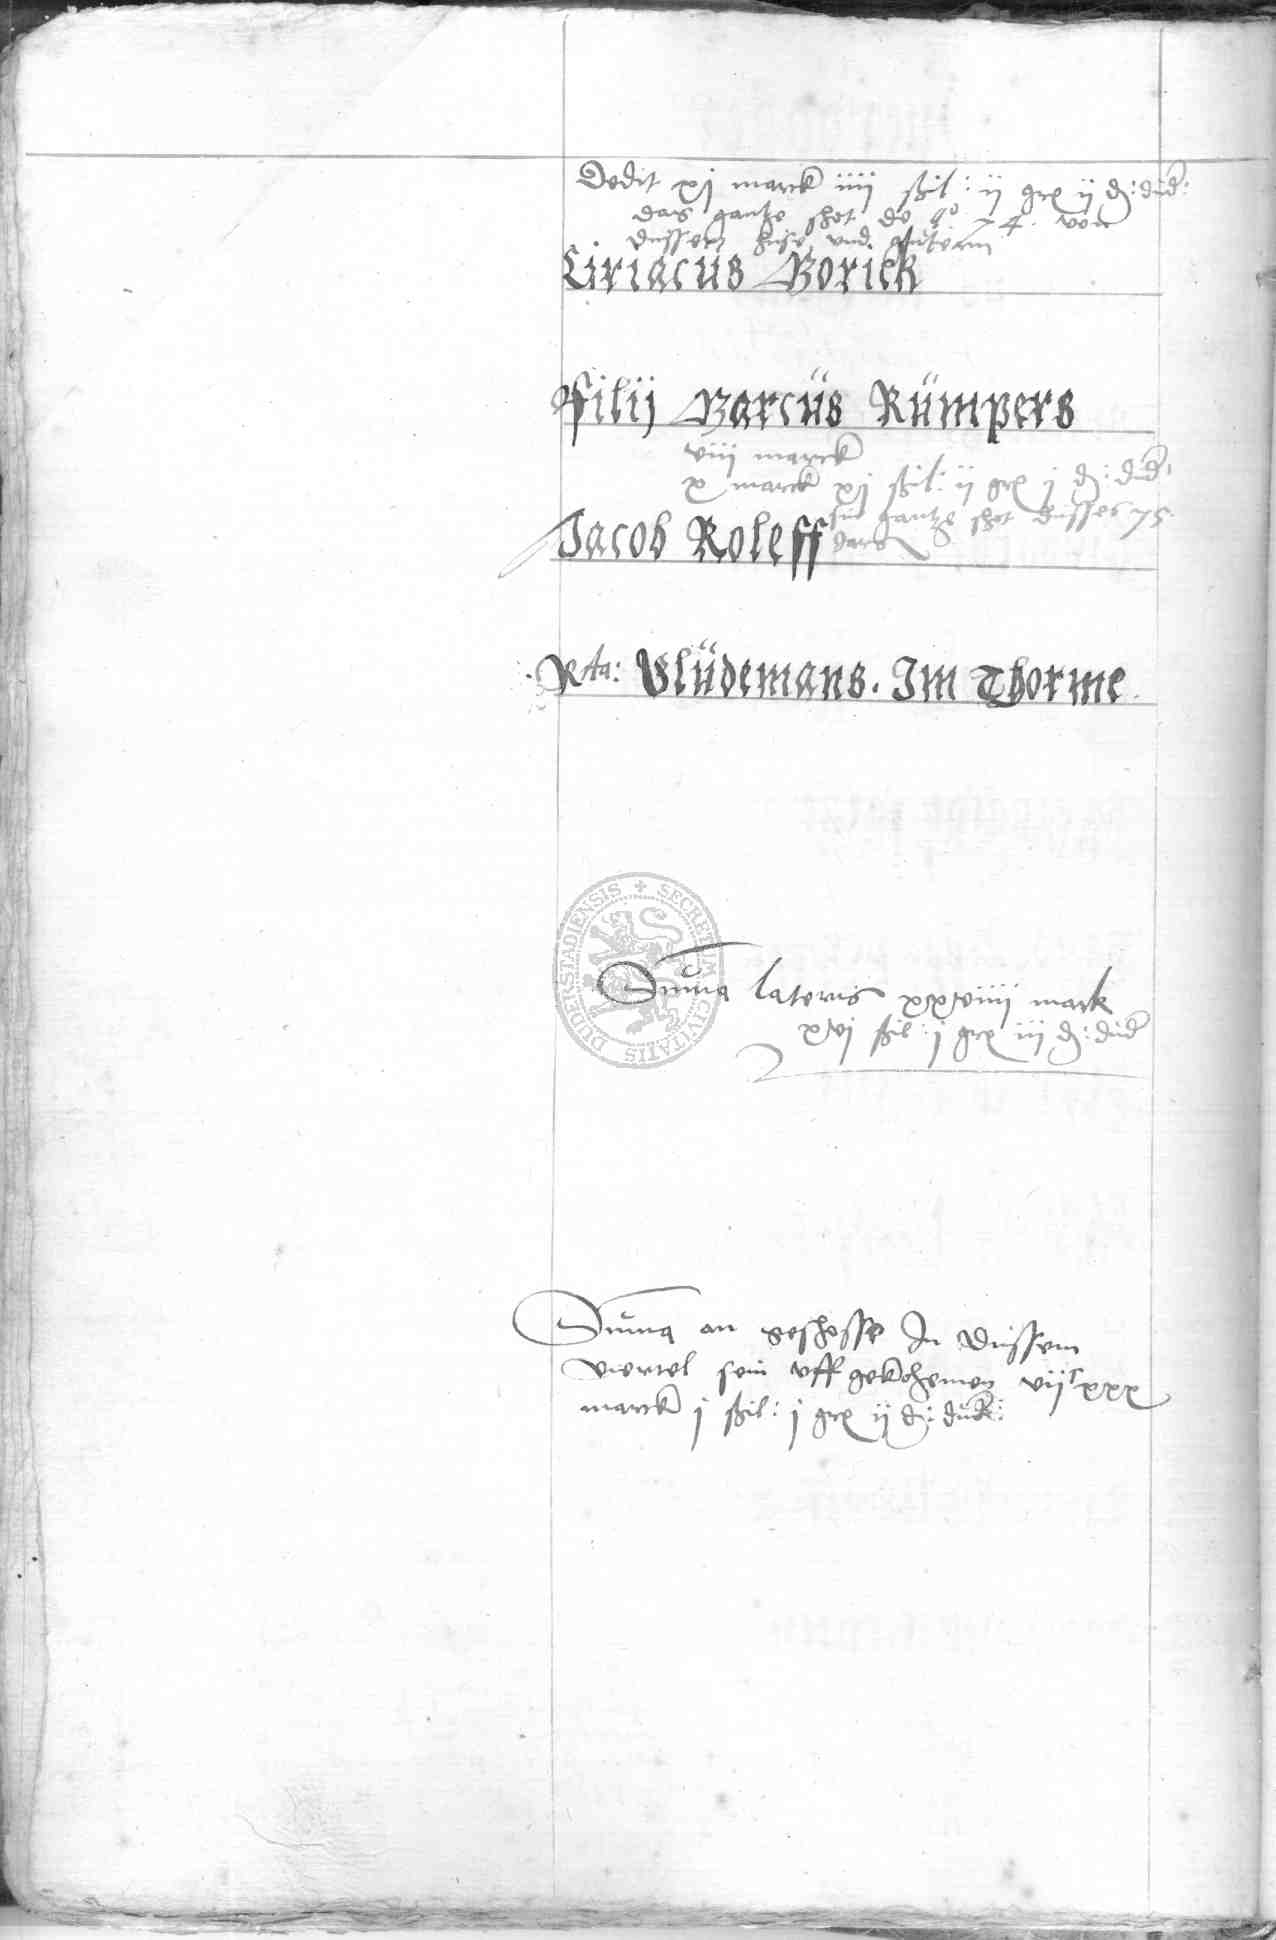 Dedit xj marck iiij ßil: ij grẹ ij d: dud:
das gantze shot de ao 74. von
dussem huse und gutern
Ciriacus Borick
Filij Barcüs Rümpers
viij marck
x marck xj ßil: ij gr j d: dud:
sin gantze shot dusses 75.
Jacob Roleff
Rta: Vlüdemans. Im Thorme
SECRETUM CIVITATIS DUDERSTADIENSIS
Suma lateris xxviiij mark
xvj ßil: j gr iij d: dud
Suma an geshosse In dussem
viertel sein uff gekohemen vijc xxx
marck j ßil: j gr ij d: dud: